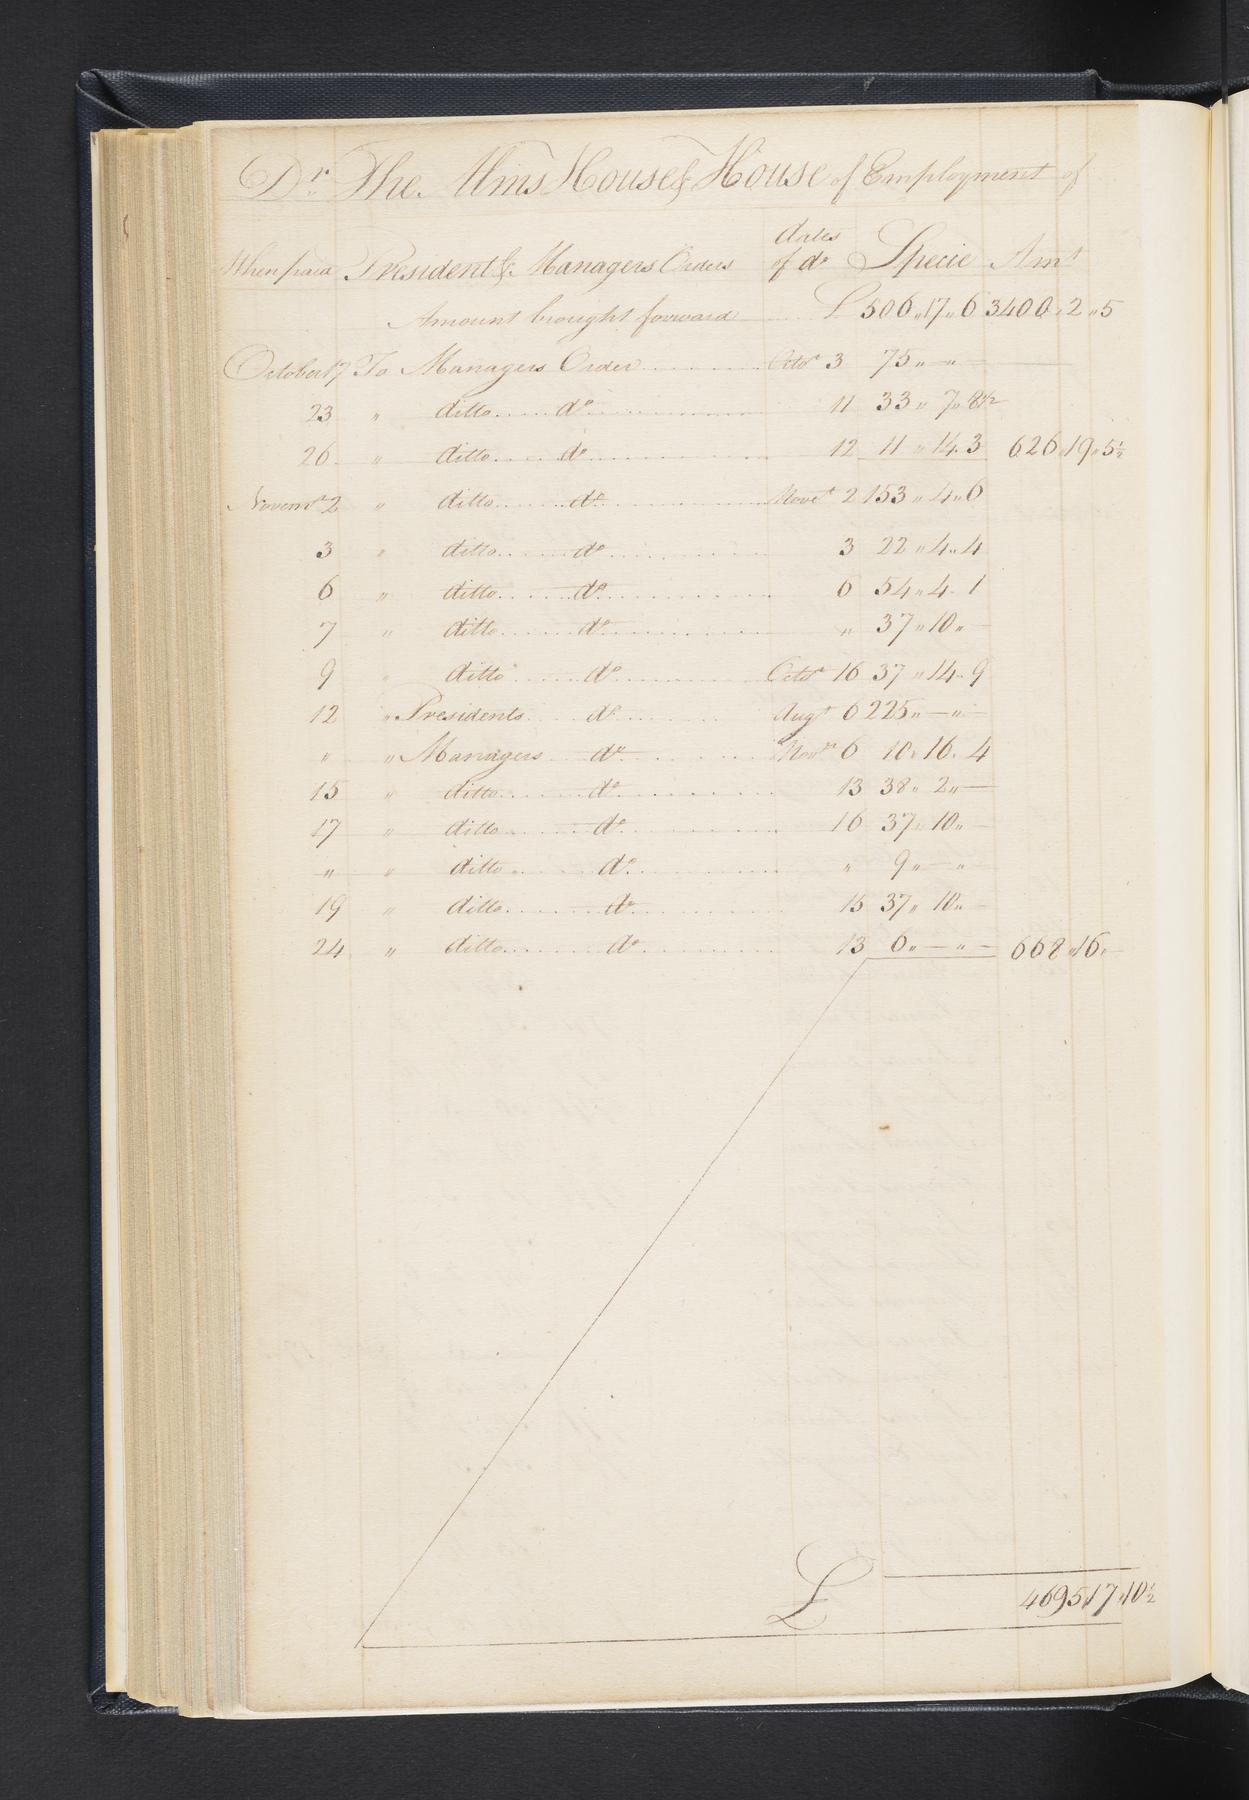 Dr. The Alms House & House of Employment of
When paid President & Managers Orders dates of do Specie Amt
Amount brought forward £ 506 " 17 " 6 3400 " 2 " 5
October 17 To Managers Order Octor 3 75 " — " —
23 " ditto do 11 33 " 7 " 8 1/2
26 " ditto do 12 11 " 14 " 3 626 " 19 " 5 1/2
Novemr 2 " ditto do Novr 2 153 " 4 " 6
3 " ditto do 3 22 " 4 " 4
6 " ditto do 6 54 " 4 " 1
7 " ditto do " 37 " 10 " —
9 " ditto do Octor 16 37 " 14 " 9
12 " Presidents do Augt 6 225 " — " —
" " Managers do Novr 6 10 " 16 " 4
15 " ditto do 13 38 " 2 " —
17 " ditto do 16 37 " 10 " —
" " ditto do " 9 " — "
19 " ditto do 15 37 " 10 " —
24 " ditto do 13 6 " — " — 668 " 16 " —
£ 4695 " 17 " 10 1/2